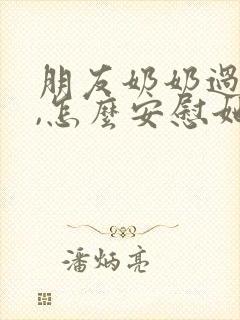 朋友奶奶過
,怎麼安慰她
潘炳亮